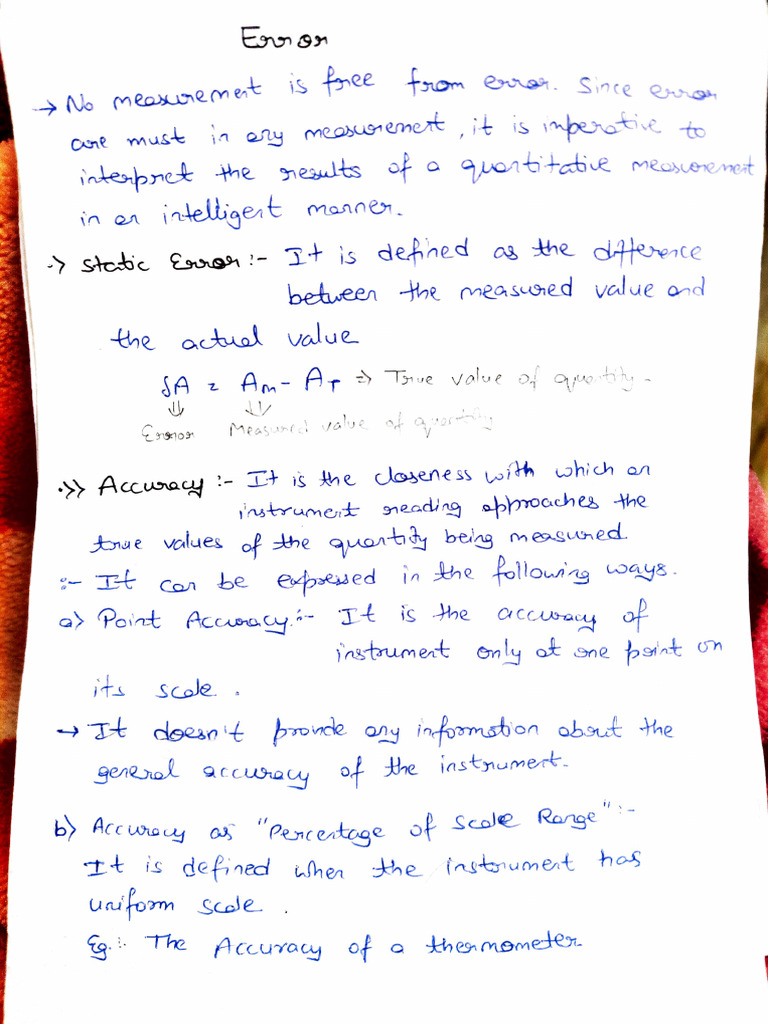 Error
→ No measurement is free from error. Since error
are must in any measurement, it is imperative to
interpret the results of a quantitative measurement
in an intelligent manner.
→ Static Error :- It is defined as the difference
between the measured value and
the actual value
δA = Am - AT ⇒ True value of quantity.
⇓ ⇓
Error Measured value of quantity
·>> Accuracy :- It is the closeness with which an
instrument reading approaches the
true values of the quantity being measured.
:- It can be expressed in the following ways.
a) Point Accuracy :- It is the accuracy of
instrument only at one point on
its scale.
→ It doesn't provide any information about the
general accuracy of the instrument.
b) Accuracy as "Percentage of Scale Range" :-
It is defined when the instrument has
uniform scale.
Eg. :- The Accuracy of a thermometer